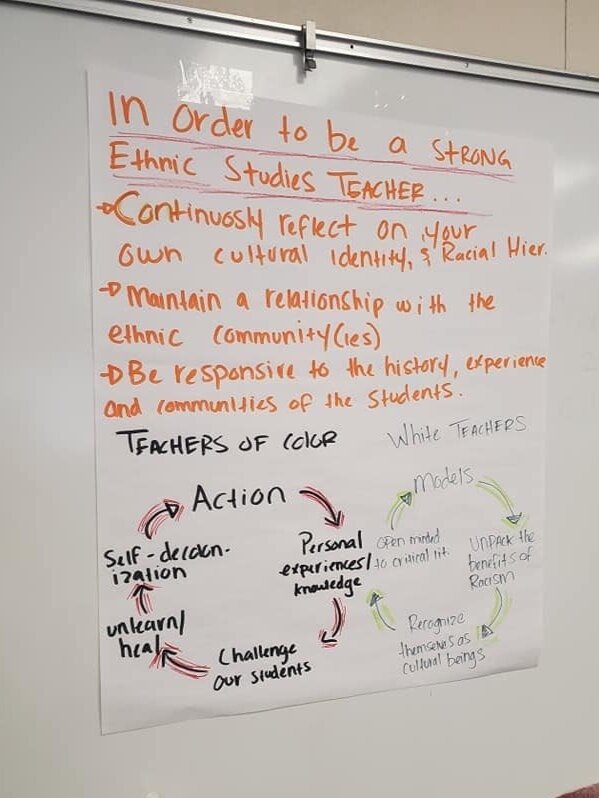 In Order to be a STRONG
Ethnic Studies TEACHER...
Continuosly reflect on your
own cultural identity, & Racial Hier.
Maintain a relationship with the
ethnic community(ies)
Be responsive to the history, experience
and communities of the students.
TEACHERS OF COLOR
Action
Personal
experiences/
knowledge
Challenge
our students
unlearn/
heal
Self-decolon-
ization
White TEACHERS
Models
UNPACK the
benefits of
Racism
Recognize
themselves as
cultural beings
open minded
to critical lit.